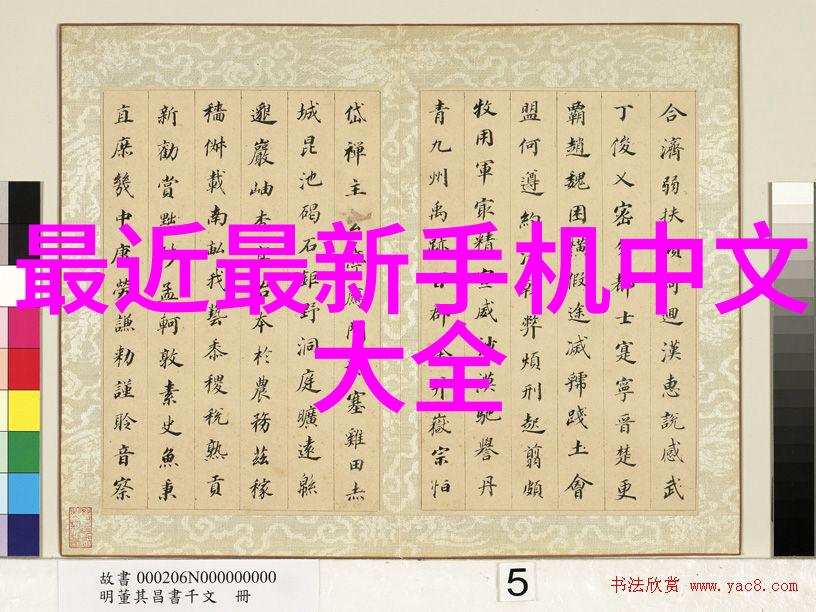 最近最新手机中文
大全
合濟弱扶傾迴漢惠說感武
丁俊乂密士寔寧晉楚更
霸趙魏困橫假途滅虢踐土會
盟何遵約弊煩刑起翦頗
牧用軍最精宣威沙漠馳譽丹
青九州禹跡百郡并嶽宗恒
岱禪主塞雞田赤
城昆池碣石鉅野洞庭曠遠緜
邈巖岫杳治本於農務茲稼
穡俶載南畝我藝黍稷稅熟貢
新勸賞黜陟孟軻敦素史魚秉
直庶幾中庸勞謙勅謹聆音察
故書 000206N000000000
明董其昌書千文 冊
5
书法欣赏 www.yac8.com